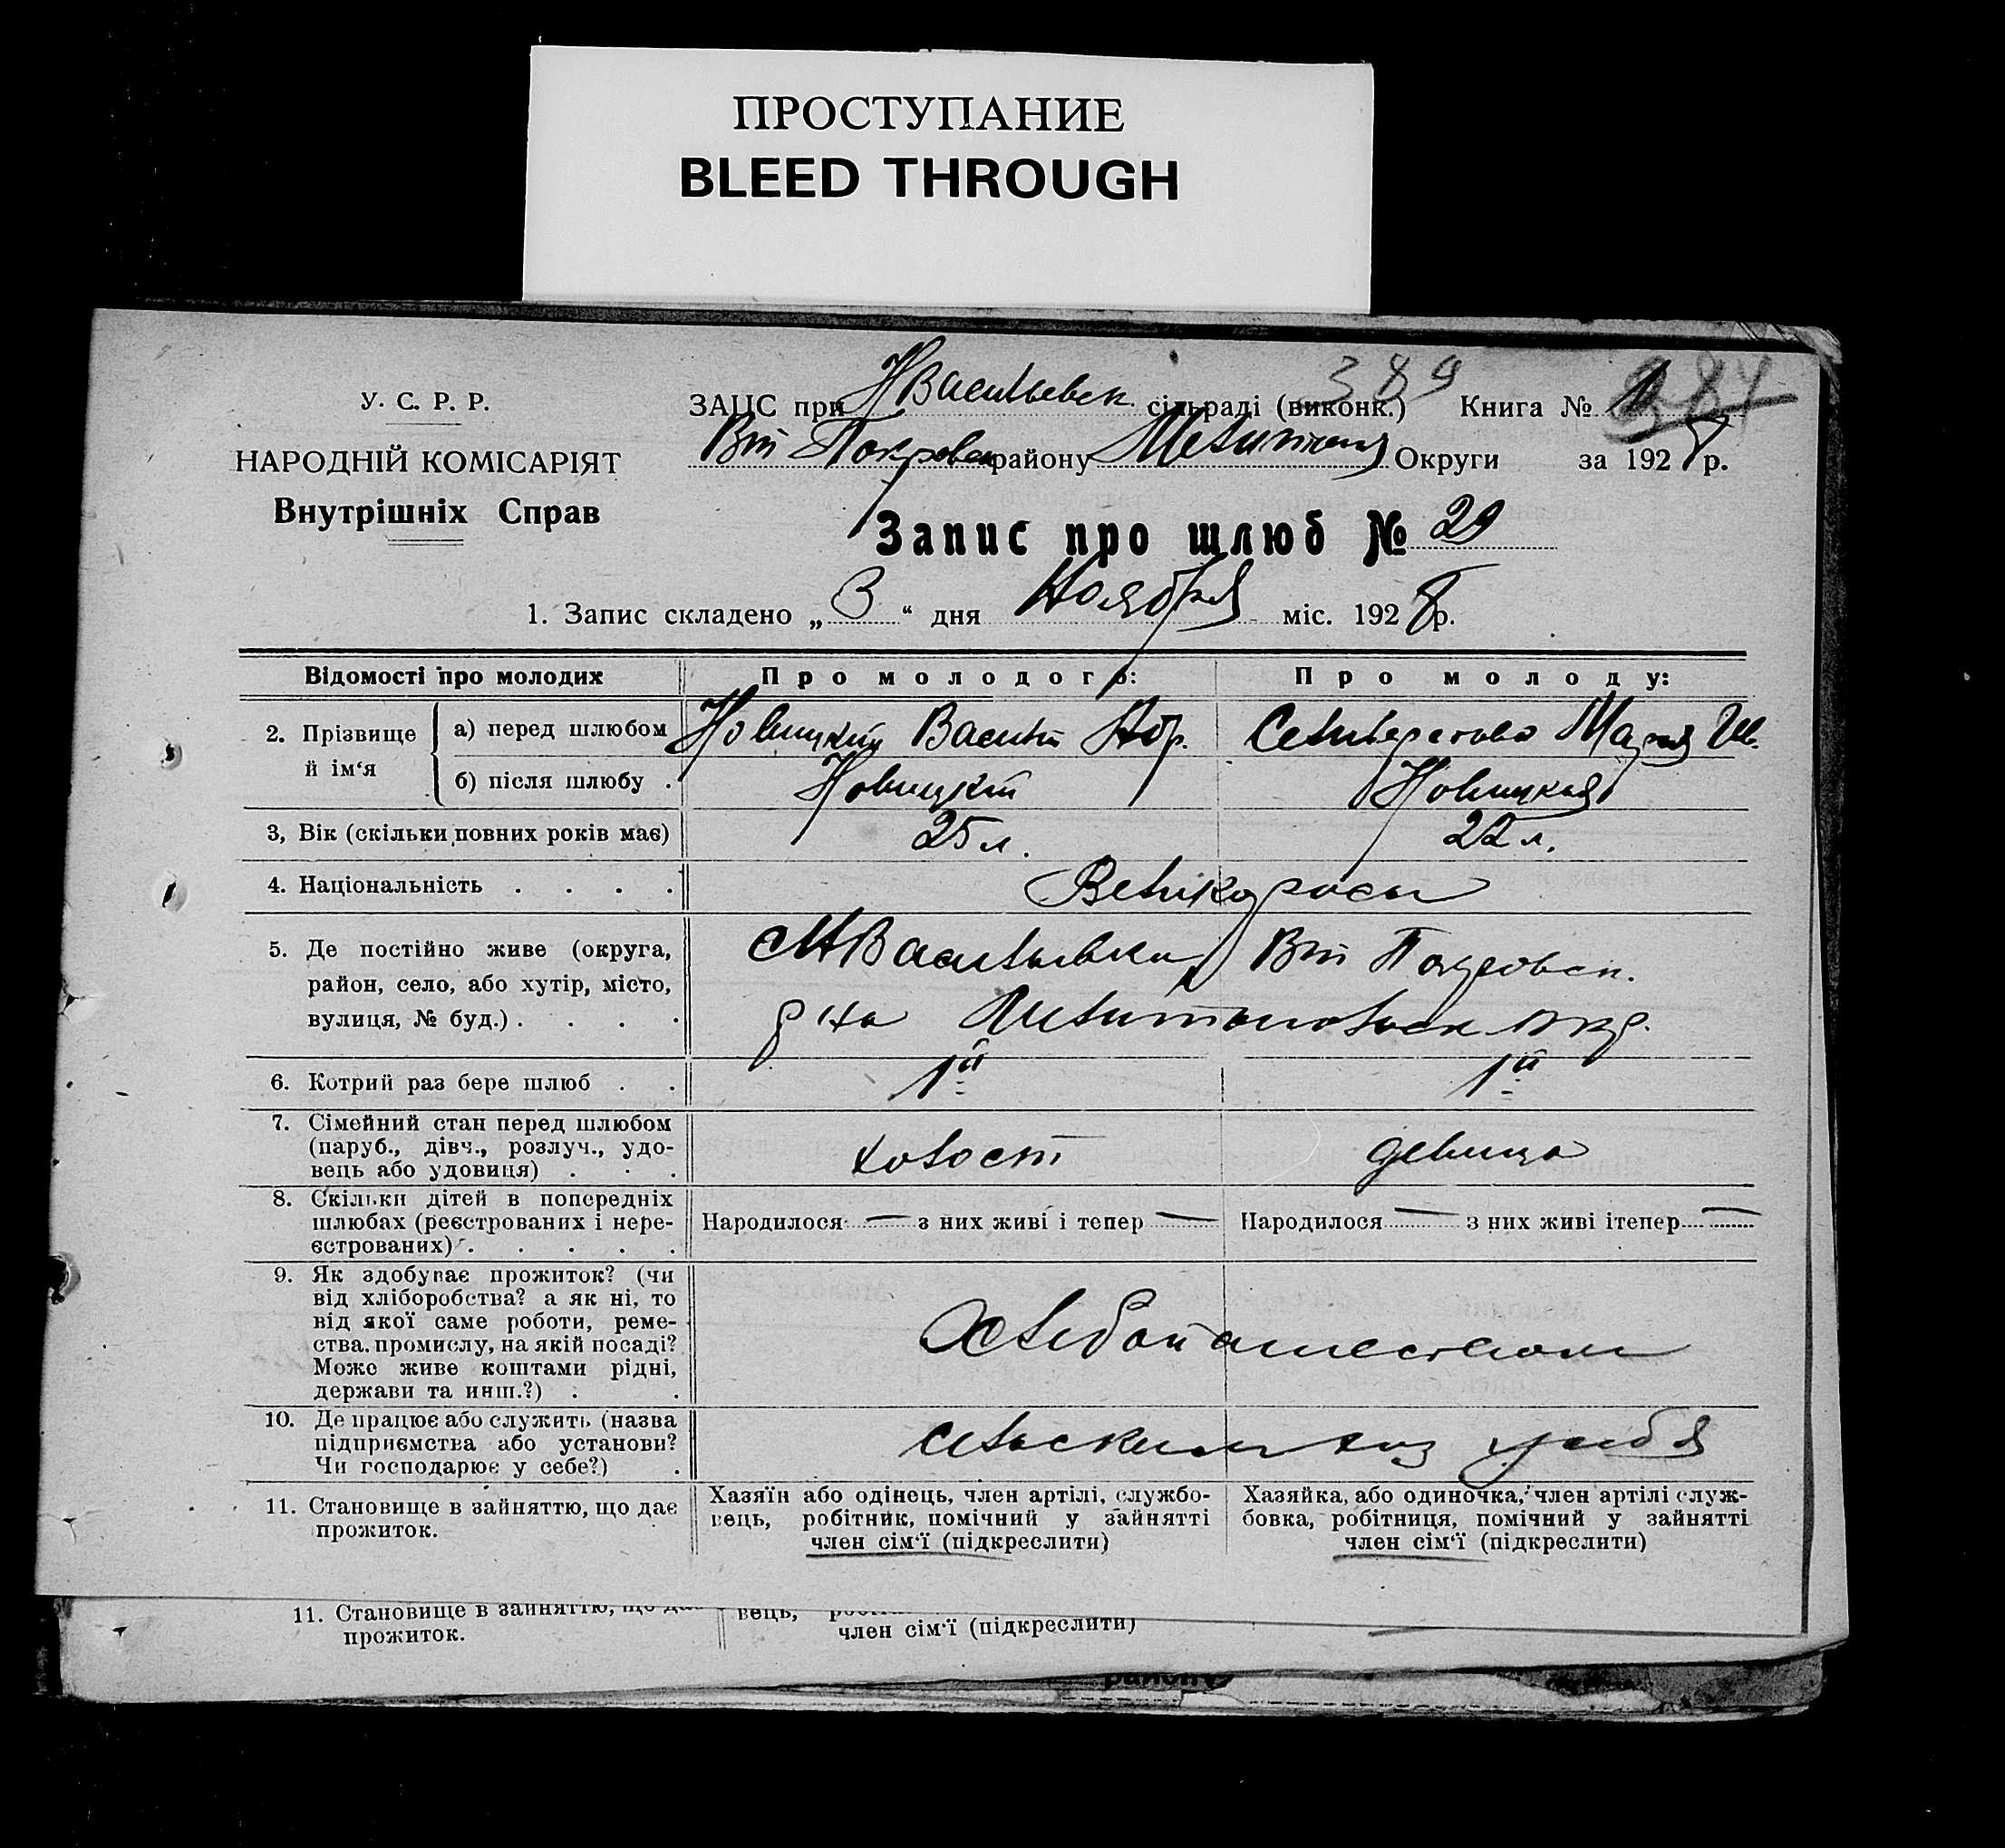 ПРОСТУПАНИЕ
BLEED THROUGH
389
У. С. Р. Р.
НАРОДНІЙ КОМІСАРІЯТ
Внутрішніх Справ
ЗАЦС при НВасильевск. сільраді (виконк.) Книга №
Вт Покровск району Округи за 1928 р.
Запис про шлюб № 29
1. Запис складено „3“ дня Ноября міс. 1928 р.
Відомості про молодих
Про молодого:
Про молоду:
2. Прізвище й ім‘я
а) перед шлюбом
Новицкий Васили
Селиверстова Мария Ив.
б) після шлюбу .
Новицкий
Новицкая
3, Вік (скільки повних років має)
25 л.
22 л.
4. Національність . . . .
Великоросы
5. Де постійно живе (округа,
район, село, або хутір, місто,
вулиця, № буд.) . . . .
НВасильевки Вт Покровск.
р на Мелитопольск окр.
6. Котрий раз бере шлюб . .
1й
1й
7. Сімейний стан перед шлюбом
(паруб., дівч., розлуч., удо-
вець або удовиця) . . .
холост
девица
8. Скільки дітей в попередніх
шлюбах (реєстрованих і нере-
єстрованих) . . . . .
Народилося — з них живі і тепер —
Народилося — з них живі ітепер —
9. Як здобуває прожиток? (чи
від хліборобства? а як ні, то
від якої саме роботи, реме-
ства, промислу, на якій посаді?
Може живе коштами рідні,
держави та инш.?) . .
Хлебопашеством
10. Де працює або служить (назва
підприємства або установи?
Чи господарює у себе?) .
сельским хоз у себя
11. Становище в зайняттю, що дає
прожиток.
Хазяїн або одінець, член артілі, службо-
вець, робітник, помічний у зайнятті
член сім‘ї (підкреслити)
Хазяйка, або одиночка, член артілі служ-
бовка, робітниця, помічний у зайнятті
член сім‘ї (підкреслити)
11. Становище в зайняттю, що дає
прожиток.
вець,
член сім‘ї (підкреслити)
району